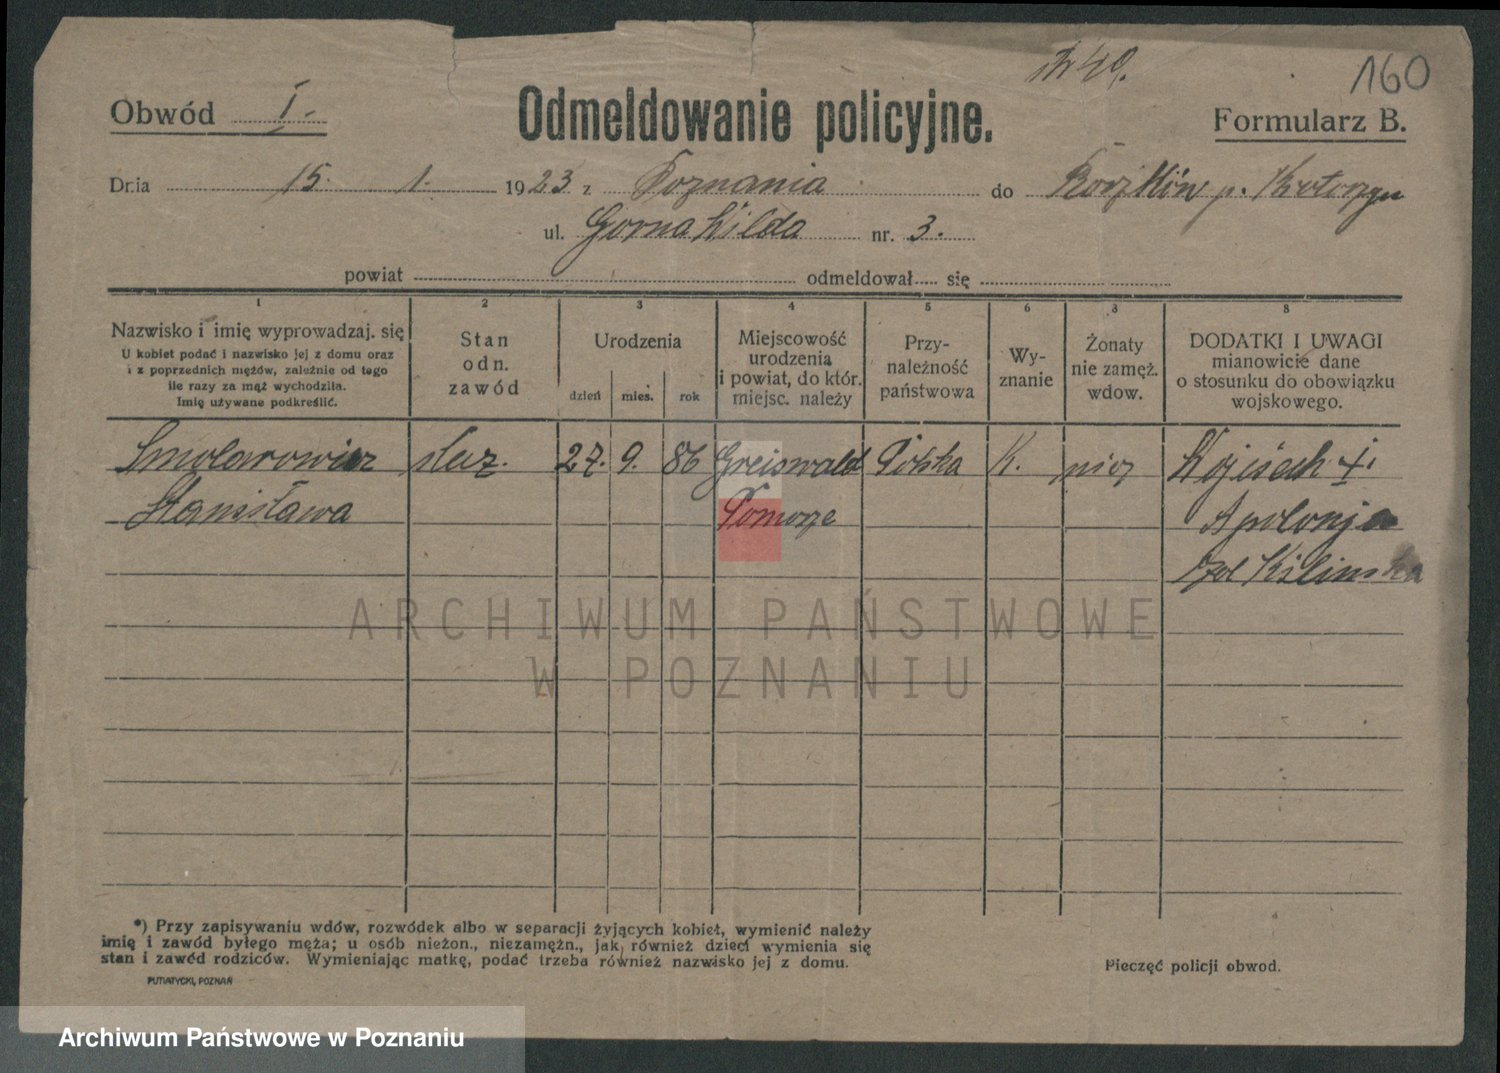 Nr 40.
160
Obwód I.
Odmeldowanie policyjne.
Formularz B.
Dnia 15. 1. 1923 z Poznania do p. Krotoszyn
ul. Gorna Wilda nr. 3.
powiat odmeldował się
1 2 3 4 5 6 8 8
Nazwisko i imię wyprowadzaj. się
U kobiet podać i nazwisko jej z domu oraz
i z poprzednich mężów, zależnie od tego
ile razy za mąż wychodziła.
Imię używane podkreślić.
Stan
odn.
zawód
Urodzenia
dzień mies. rok
Miejscowość
urodzenia
i powiat, do któr.
miejsc. należy
Przy-
należność
państwowa
Wy-
znanie
Żonaty
nie zamęż.
wdow.
DODATKI I UWAGI
mianowicie dane
o stosunku do obowiązku
wojskowego.
Smolarowicz służ. 27. 9. 86 Greiswald Polska K. niez Wojciech
Stanisława Pomorze Apolonja
Kilinska
ARCHIWUM PAŃSTWOWE
W POZNANIU
*) Przy zapisywaniu wdów, rozwódek albo w separacji żyjących kobiet, wymienić należy
imię i zawód byłego męża; u osób nieżon., niezamężn., jak również dzieci wymienia się
stan i zawód rodziców. Wymieniając matkę, podać trzeba również nazwisko jej z domu.
PUTIATYCKI, POZNAŃ
Pieczęć policji obwod.
Archiwum Państwowe w Poznaniu